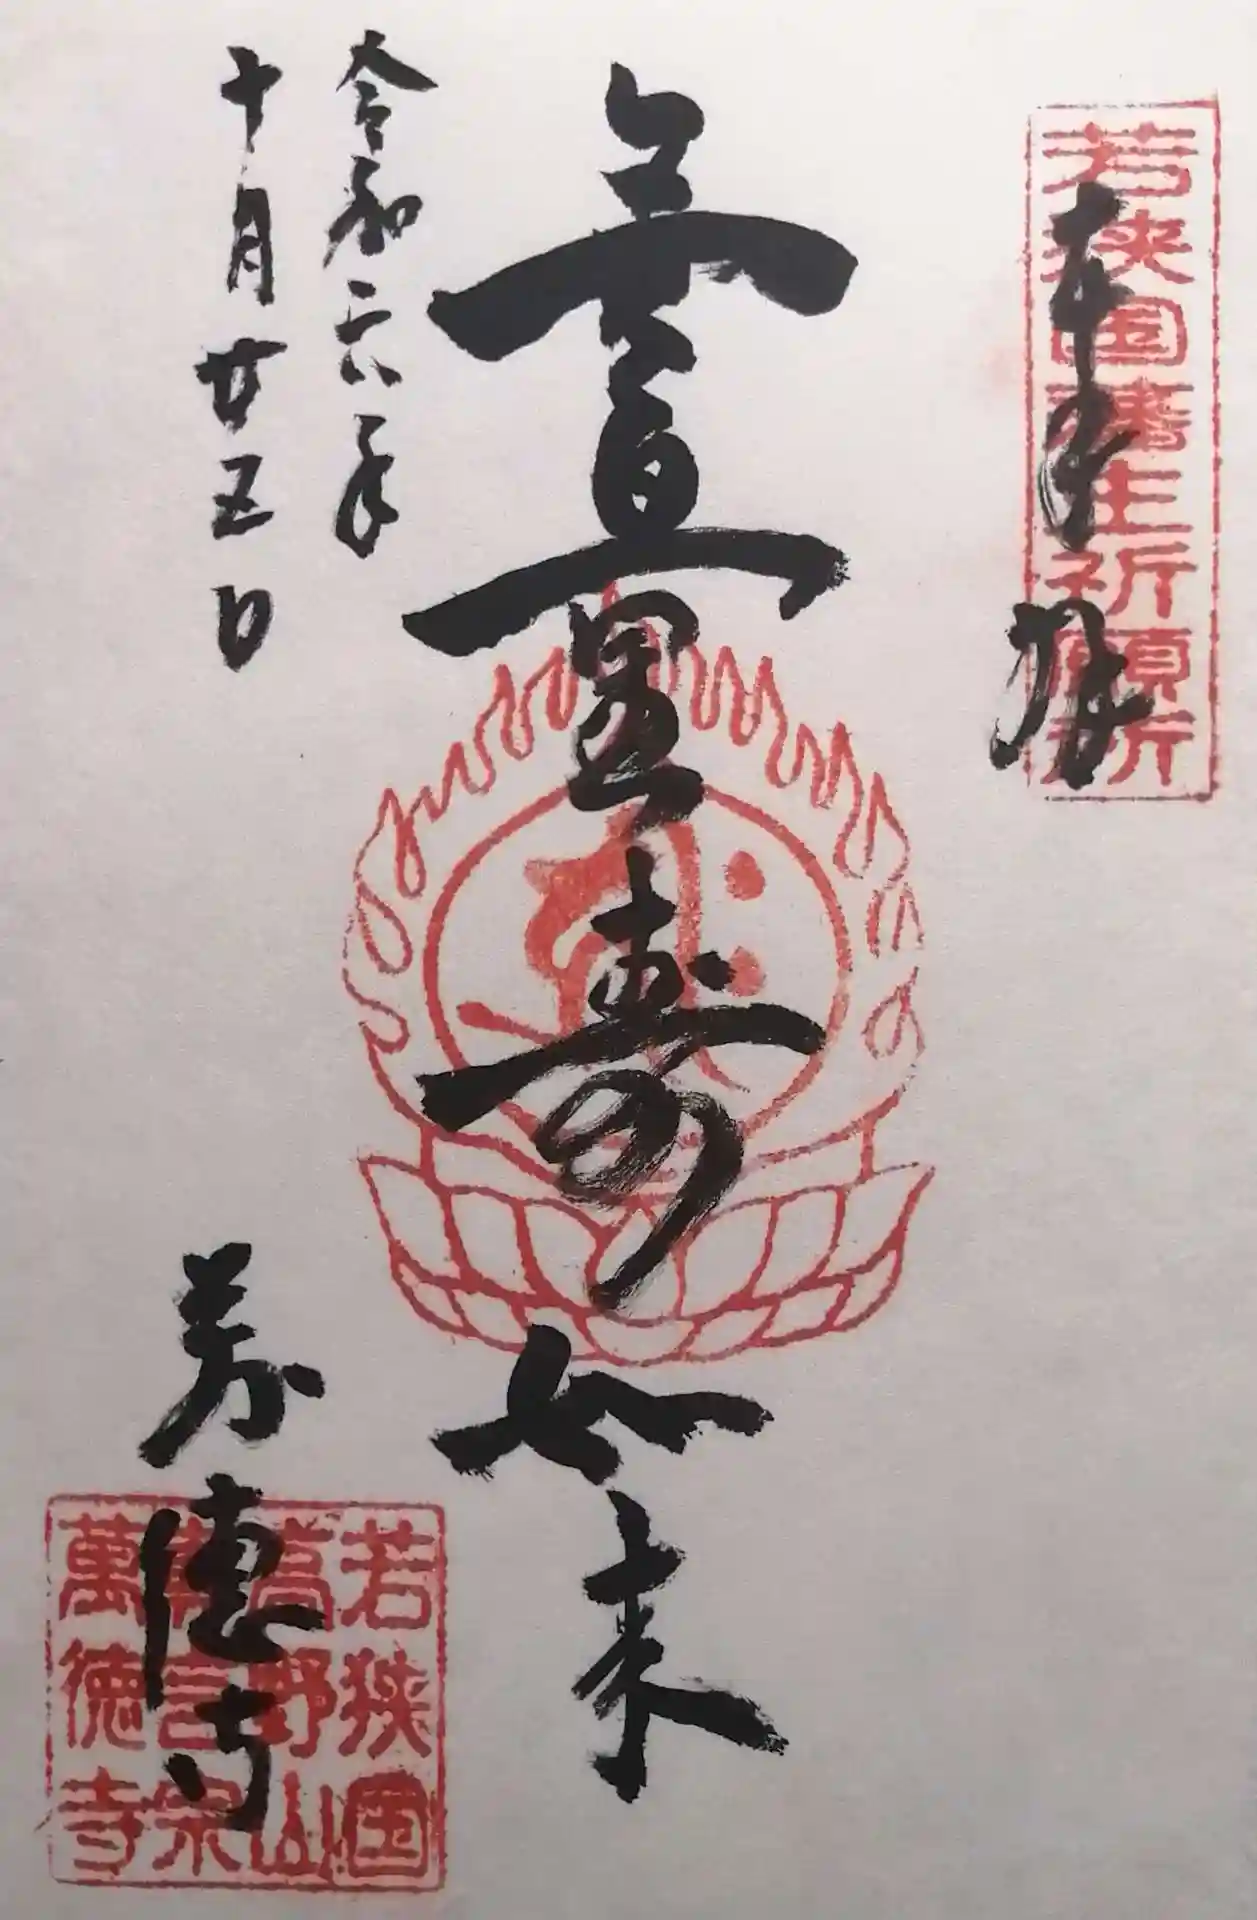 奉拝
若狭国藩主祈願所
無量寿如来
令和六年
十月廿五日
萬德寺
若狭国
高野山
真言宗
萬徳寺